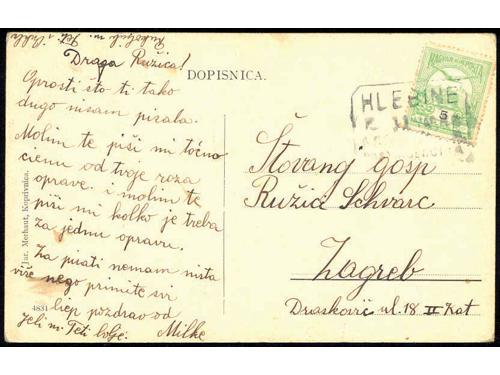 Draga Ružica!
Oprosti što ti tako
dugo nisam pisala.
Molim te piši mi točno
cienu od tvoje roza
oprave. i molim te
piši mi kolko je treba
za jednu opravu.
Za pisati nemam ništa
više nego primite svi
liep pozdrav od
Milke
DOPISNICA.
Jur. Merhaut, Koprivnica.
4831
MAGYAR KIR. POSTA
5
HLEBINE
Štovang gosp
Ružic Schvarc
Zagreb
Draskovič ul. 18 II Kat